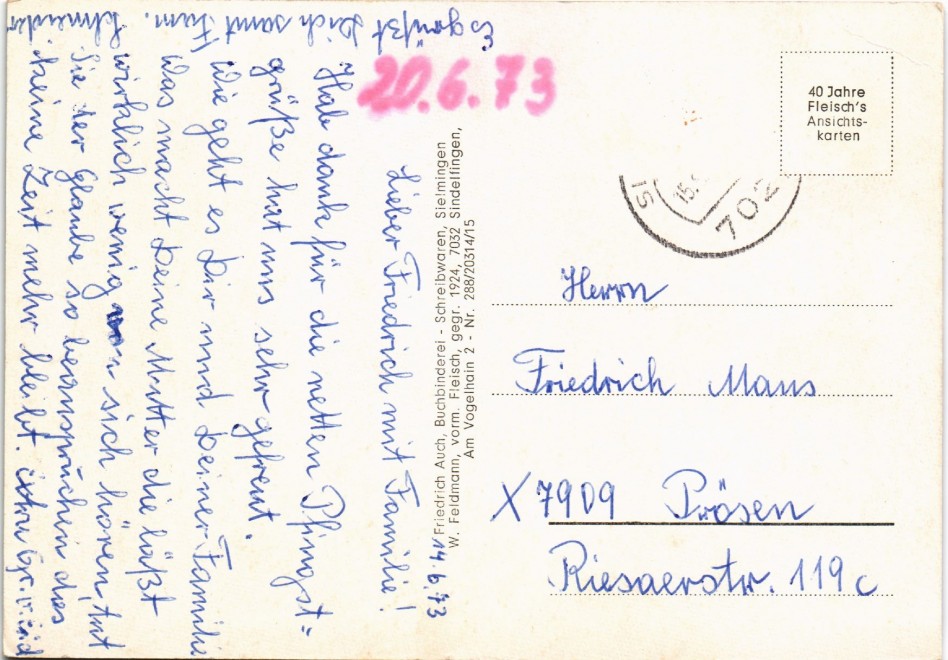 14.6.73
Lieber Friedrich mit Familie!
Hab dank für die netten Pfingst=
grüße hat uns sehr gefreut.
Wie geht es Dir und Deiner Familie
Was macht Deine Mutter die läßt
wirklich wenig von sich hören, tut
Sie der Glaube so beanspruchen das
keine Zeit mehr bleibt.
Es grüßt Dich samt Fam.
20.6.73
Friedrich Auch, Buchbinderei - Schreibwaren, Sielmingen
W. Feldmann, vorm. Fleisch, gegr. 1924, 7032 Sindelfingen,
Am Vogelhain 2 - Nr. 288/20314/15
40 Jahre
Fleisch's
Ansichts-
karten
SI
15.
702
Herrn
Friedrich Maus
X 7909 Prösen
Riesaerstr. 119c